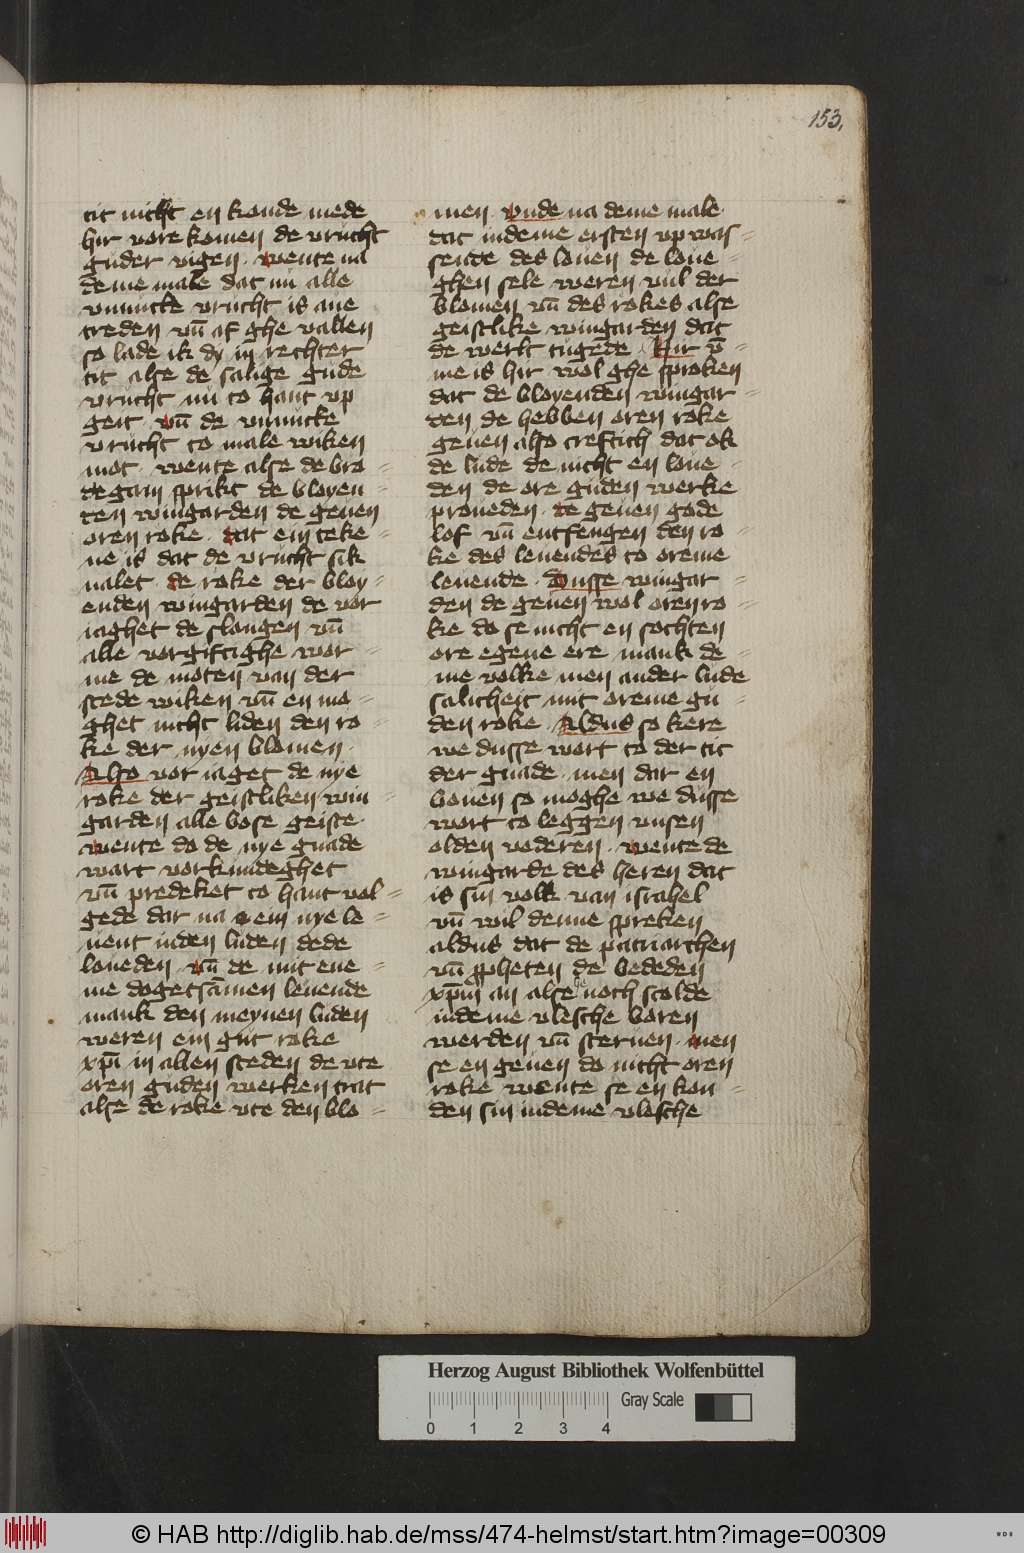 153.
tit nicht en konde mede
hir vore komen de vrůcht
gůder vigen . wente na
deme male dat nu alle
vnnutte vrucht is aue
treden vn̄ af ghe vallen
so lade ik dy in rechter
tit alse de salige gůde
vrůcht nu to hant vp
geit vn̄ de vnnutte
vrůcht to male wiken
mot . wente alse de bro=
degam sprikt de bloyen=
den wingarden de geuen
oren roke . dat ein teke=
ne is dat de vrůcht sik
nalet . de roke der bloy=
enden wingarden de vor
iaghet de slangen vn̄
alle vorgiftighe wor=
me de moten van der
stede wiken vn̄ en mo=
ghet nicht liden den ro=
ke der nyen blomen .
Also vor iaget de nye
roke der geistliken win=
garden alle bose geiste .
wente do de nye gnade
wart vorkundeghet
vn̄ predeket to hant vol=
gede dar na ein nye le=
uent inden luden dede
loueden . vn̄ de mit ene=
me dogetsāmen leuende
mank den meynen luden
weren ein gůt roke
xp̄i in allen steden de vte
oren guden werken trat
alse de roke vte den blo=
men . vnde na deme male
dat indeme ersten vp was=
sende des louen de loue=
ghen sele weren vul der
blomen vn̄ des rokes alse
geistlike wingarden dat
de werlt tůgede . Hir v̄=
me is hir wol ghe sproken
dat de bloyenden wingar=
den de hebben oren roke
geuen also creftich dat ok
de lude de nicht en loue=
den de ore gůden werke
proueden . de geuen gode
lof vn̄ entfengen den ro=
ke des leuendes to oreme
leuende . Dusse wingar=
den de geuen wol oren ro=
ke do se nicht en sochten
ore egene ere mank de=
me volke men ander lude
salicheit mit oreme gu=
den roke . Aldus so kere
we dusse wort to der tit
der gnade . men dar en
bouen so moghe we důsse
wort to leggen vnsen
olden vederen . wente de
wingarde des heren dat
is sin volk van israhel
vn̄ wil denne spreken
aldus dat de patriarchen
vn̄ ppheten de bededen
xp̄m an alse he noch scolde
indeme vlesche boren
werden vn̄ steruen . men
se en geuen do nicht oren
roke wente se en kon=
den sin indeme vlesche
Herzog August Bibliothek Wolfenbüttel
Gray Scale
0 1 2 3 4
© HAB http://diglib.hab.de/mss/474-helmst/start.htm?image=00309
WDB